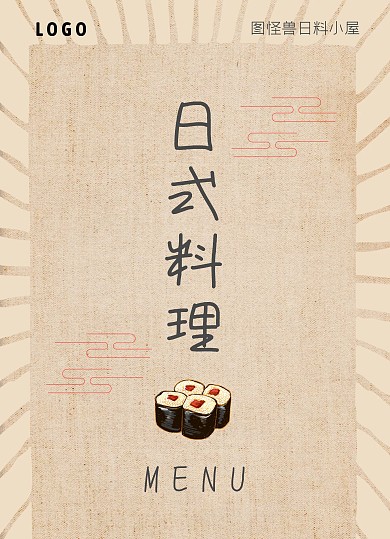 LOGO
图怪兽日料小屋
日式料理
MENU